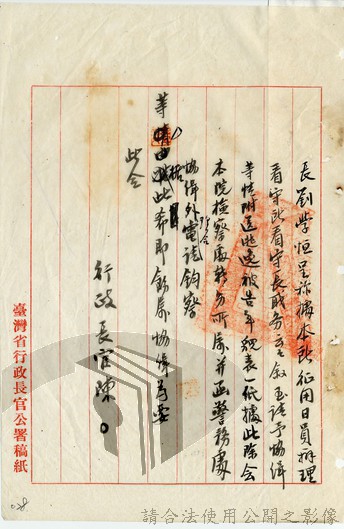 長劉學恒呈稱據本所征用日員辦理
看守所看守長職務
等情附送逃逸被告年貌表一紙據此除令
本院檢察處轉飭所屬并函警務處
協緝外電請鈞察
等情據此希即飭屬協緝為要
此令
行政長官陳○
臺灣省行政長官公署稿紙
028
請合法使用公開之影像